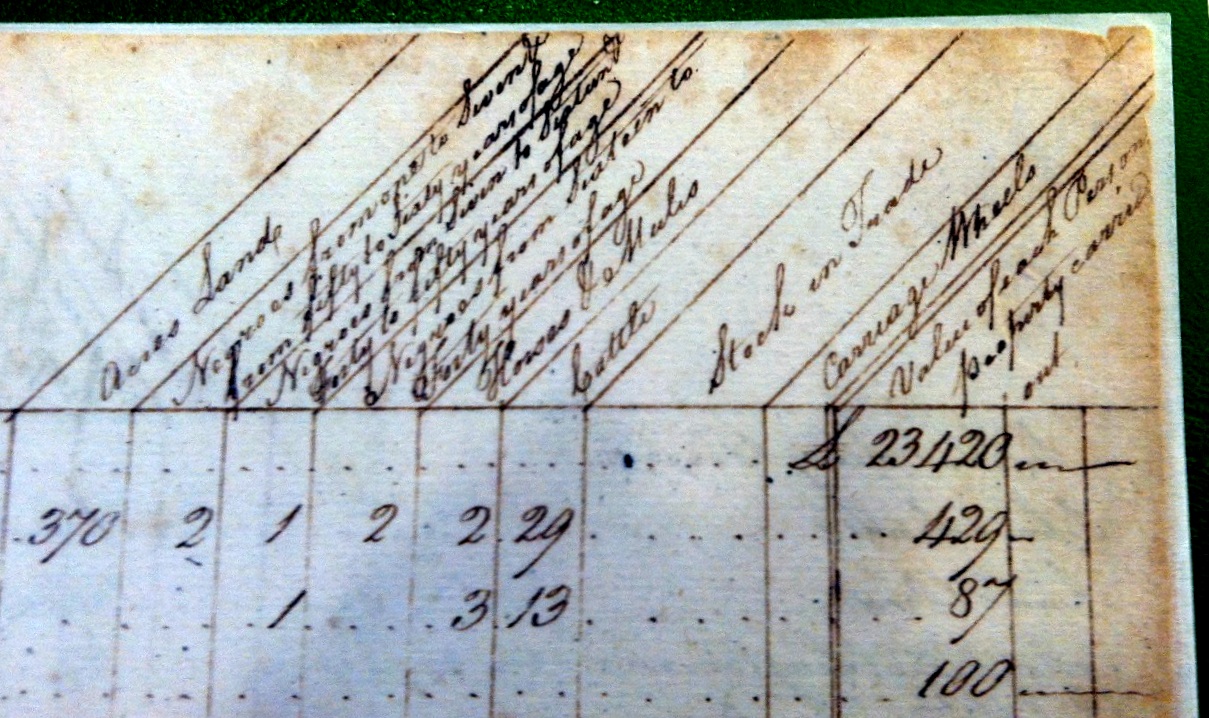 Acres Land
Negroes from one to Seven &
from fifty to Sixty years of age
Negroes from Seven to Sixteen &
forty to fifty years of age
Negroes from Sixteen to
forty years of age
Horses & Mules
Cattle
Stock in Trade
Carriage Wheels
Value of each Person
property carried
out.
£ 23420
370 2 1 2 2 29 429
1 3 13 87
100